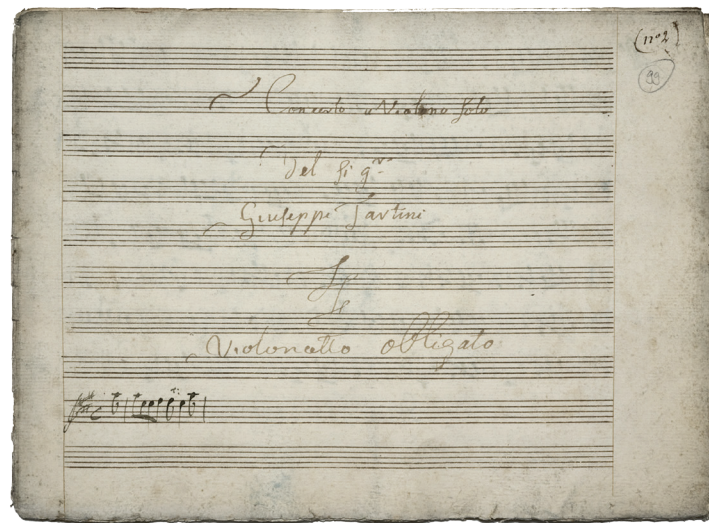 (n.º 2)
99
Concerto a Violino Solo
Del Sig.r
Giuseppe Tartini
Violoncello obligato